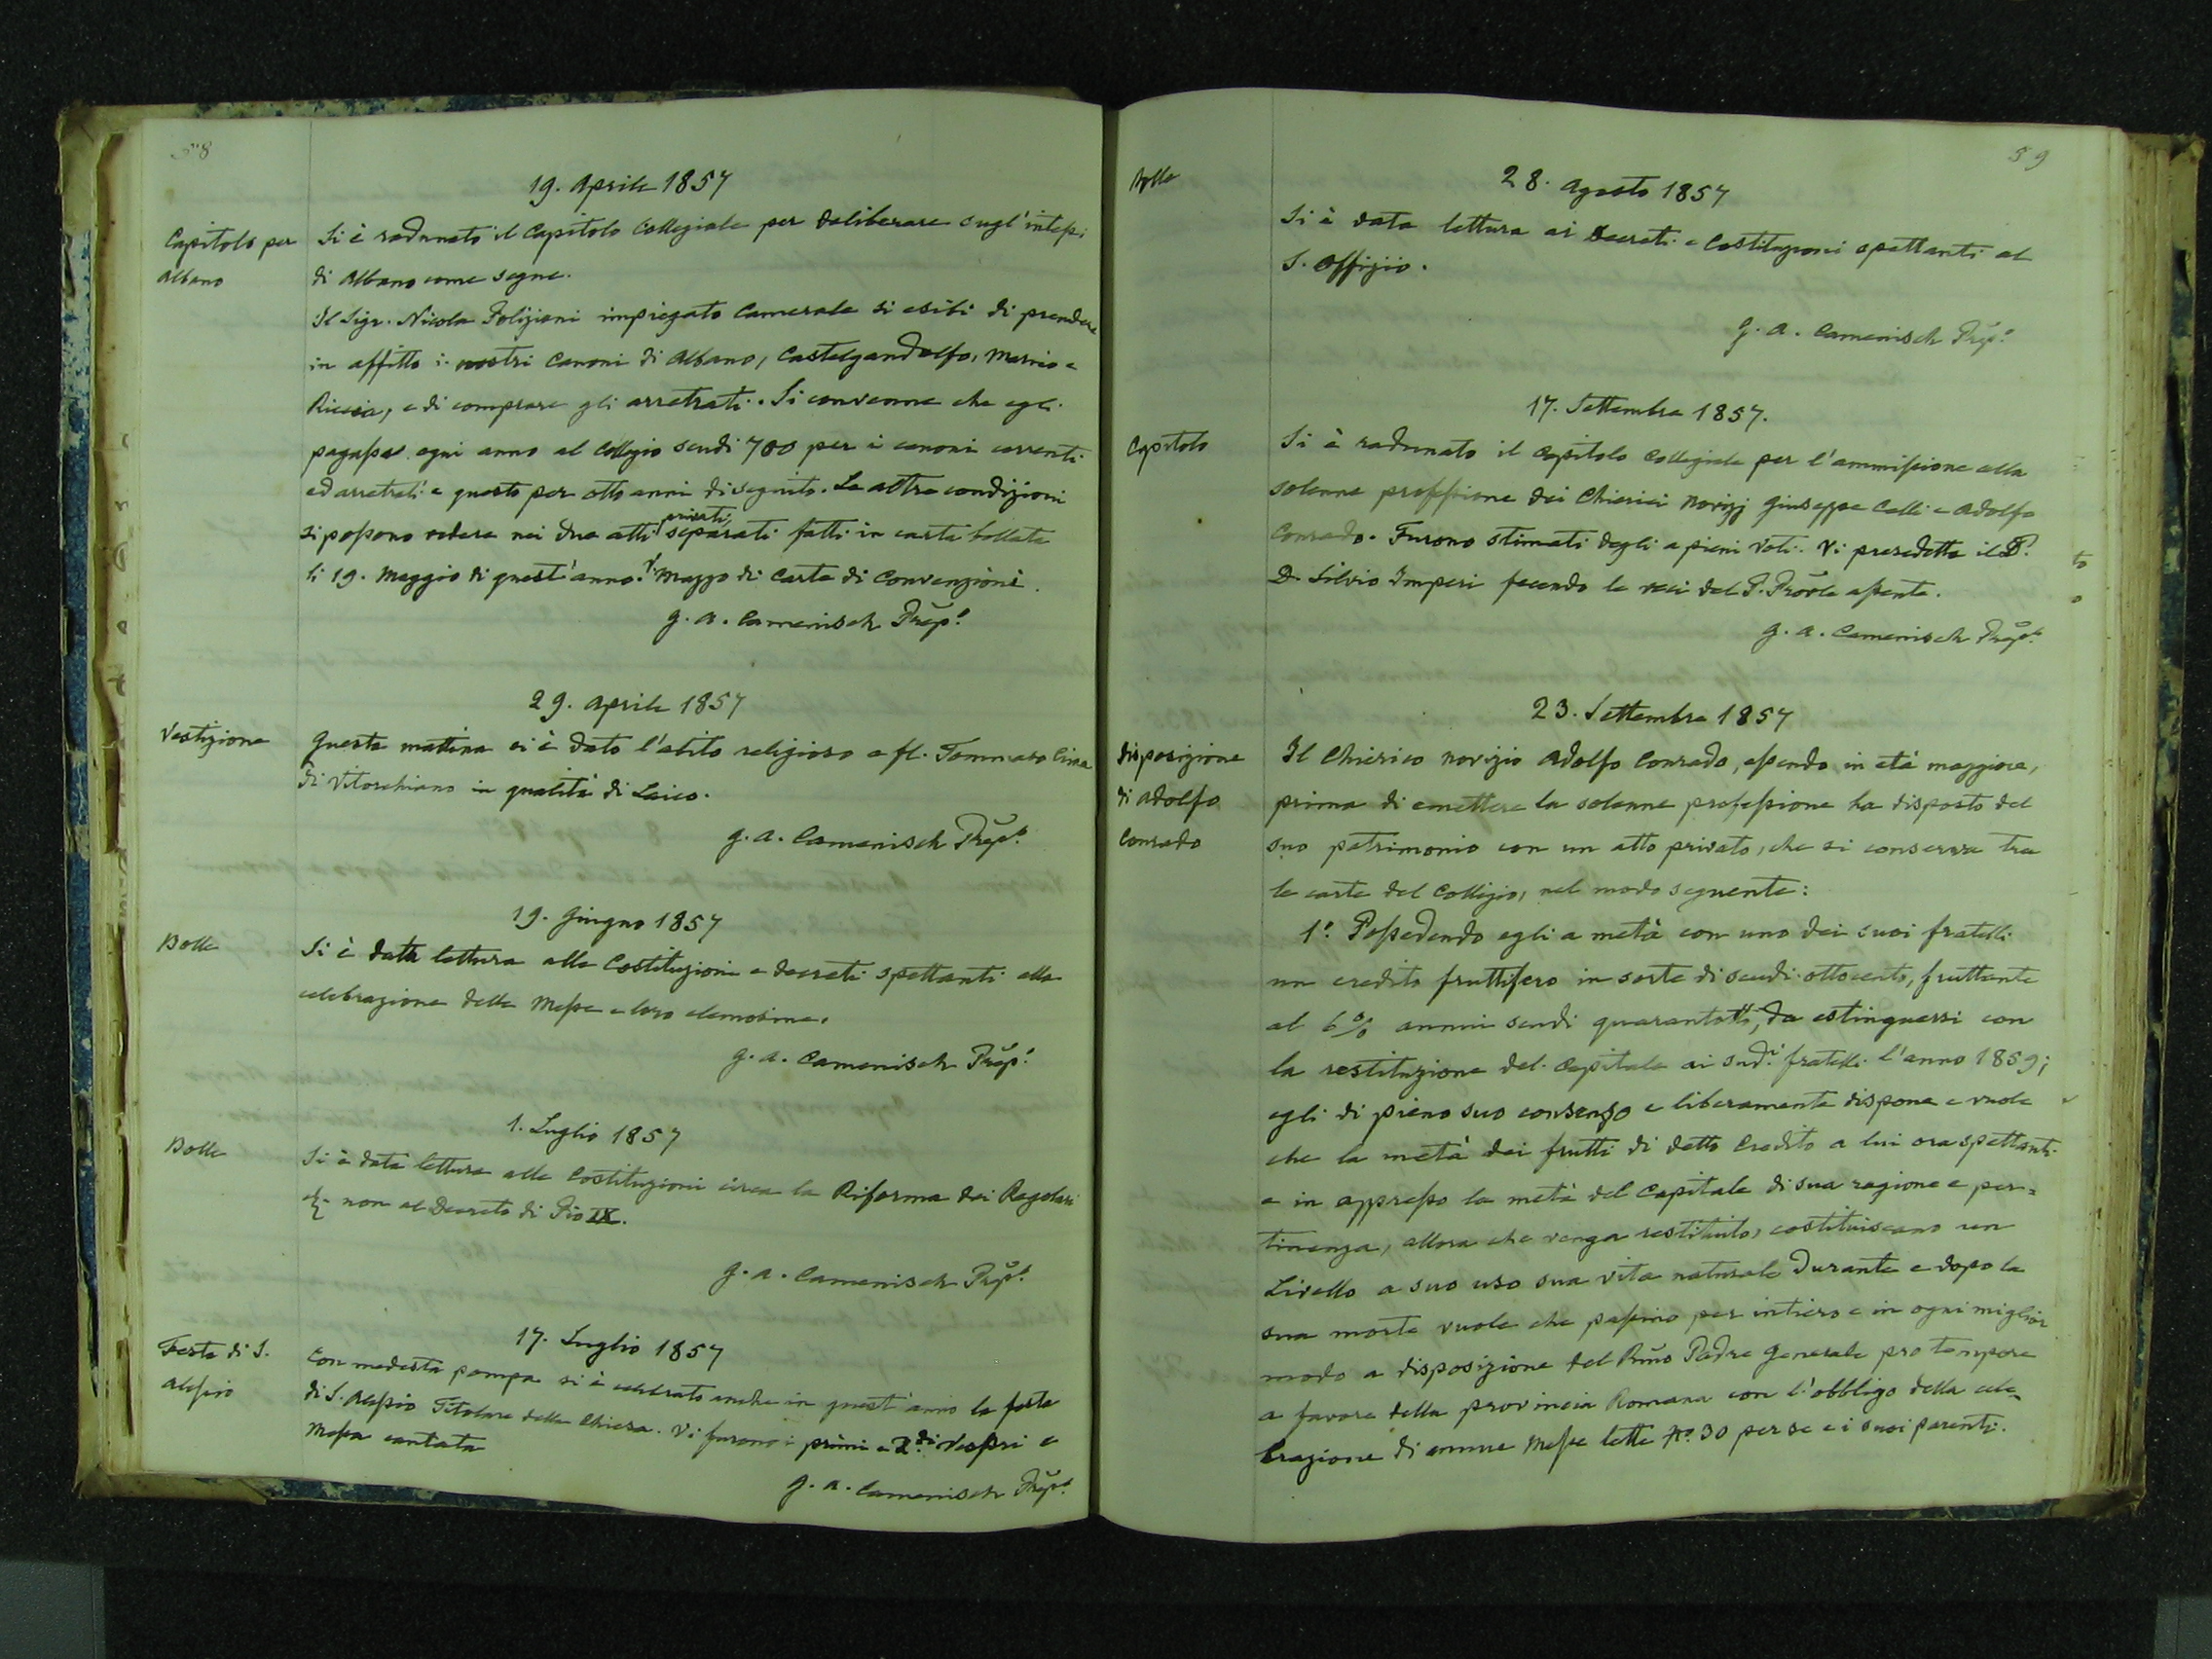 58
19. Aprile 1857
Capitolo per
Albano
Si è radunato il Capitolo Collegiale per deliberare sugl'intessi
di Albano come segue.
Il Sigr. Nicola Polizioni impiegato Camerale si esibì di prendere
in affitto i nostri Canoni di Albano, Castelgandolfo, Marino e
Riccia, e di comprare gli arretrati. Si convenne che egli
pagasse ogni anno al Collegio scudi 700 per i canoni correnti
ed arretrati e questo per otto anni di seguito. Le altre condizioni
si possono vedere nei due atti privati, separati fatti in carta bollata
li 19. Maggio di quest'anno. V. Mazzo di Carte di Convenzioni.
G. A. Camenisch Prep.o
29. Aprile 1857
Vestizione
Questa mattina si è dato l'abito religioso a fl. Tommaso Cima
di Vitorchiano in qualità di Laico.
G. A. Camenisch Prep.o
19. Giugno 1857
Bolle
Si è data lettura alle Costituzioni e decreti spettanti alla
celebrazione delle Messe e loro elemosine.
G. A. Camenisch Prep.o
1. Luglio 1857
Bolle
Si è data lettura alle Costituzioni circa la Riforma dei Regolari
non al Decreto di Pio IX.
G. A. Camenisch Prep.o
17. Luglio 1857
Festa di S.
Alessio
Con modesta pompa si è celebrato anche in quest'anno la festa
di S. Alessio Titolare della Chiesa. Vi furono i primi e 2.di Vespri e
Messa cantata
G. A. Camenisch Prep.o
59
28. Agosto 1857
Bolle
Si è data lettura ai Decreti e Costituzioni spettanti al
S. Offizio.
G. A. Camenisch Prep.o
17. Settembre 1857.
Capitolo
Si è radunato il Capitolo Collegiale per l'ammissione alla
solenne professione dei Chierici Novizj Giuseppe Celli e Adolfo
Conrado. Furono stimati degli a pieni voti. Vi presedette il P.
D. Silvio Imperi facendo le veci del P. Prõvle assente.
G. A. Camenisch Prep.o
23. Settembre 1857
Disposizione
di Adolfo
Conrado
Il Chierico novizio Adolfo Conrado, essendo in età maggiore,
prima di emettere la solenne professione ha disposto del
suo patrimonio con un atto privato, che si conserva tra
le carte del Collegio, nel modo seguente:
1.o Possedendo egli a metà con uno dei suoi fratelli
un credito fruttifero in sorte di scudi ottocento, fruttante
al 6% annui scudi quarantotto, da estinguersi con
la restituzione del Capitale ai sud.i fratelli l'anno 1859;
egli di pieno suo consenso e liberamente dispone e vuole
che la metà dei frutti di detto Credito a lui ora spettanti
e in appresso la metà del Capitale di sua ragione e per=
tinenza, allora che venga restituito, costituiscano un
Livello a suo uso sua vita naturale durante e dopo la
sua morte vuole che passino per intiero e in ogni miglior
modo a disposizione del Rm̃o Padre Generale pro tempore
a favore della provincia Romana con l'obbligo della cele=
brazione di annue Messe lette N.o 30 per se e i suoi parenti.